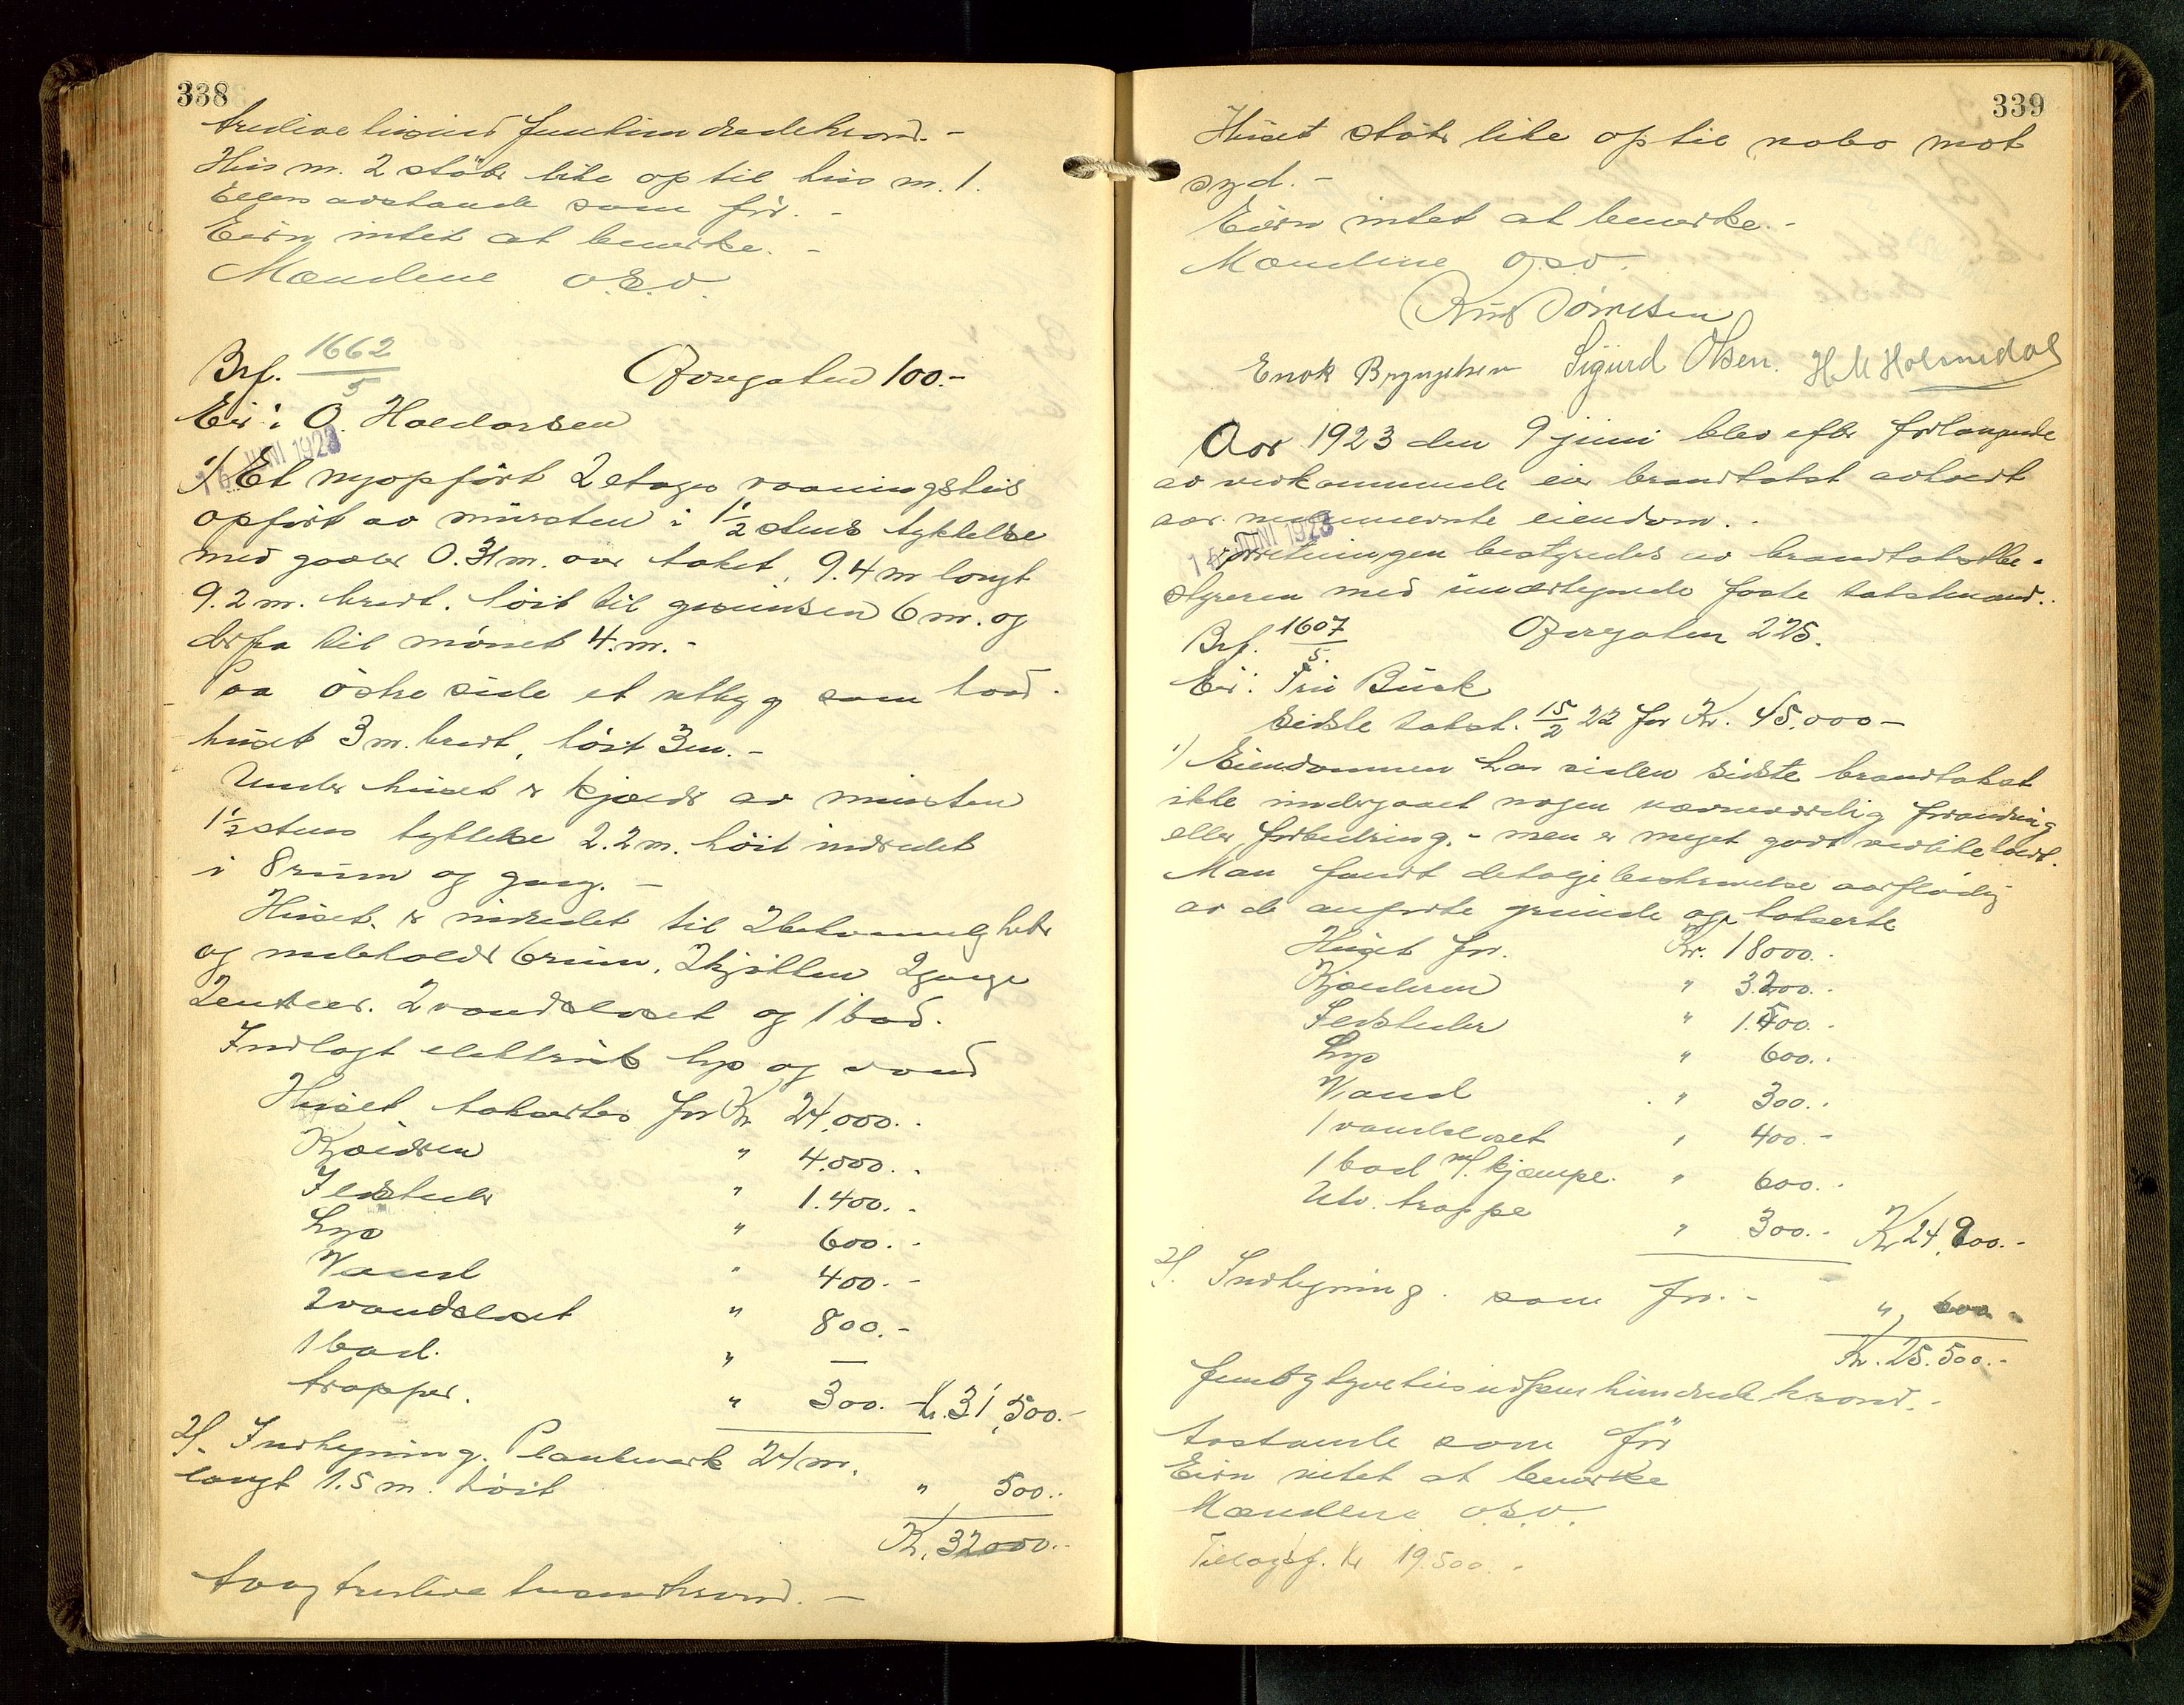 338
tredive tusind femhundredekroner. -
Hus nr. 2 støter like op til hus nr. 1.
Ellers avstande som før. -
Eiern intet at bemerke. -
Mændene o.s.v.
Brf. 1662/5 Øvregaten 100.-
Eier: O. Haldorsen
16 JUNI 1923
1) Et nyopført 2 etages vaaningshus
opført av mursten i 1 1/2 stens tykkelse
med gavler 0.31 m. over taket, 9.4 m langt
9.2 m. bredt, høit til gesimsen 6 m. og
derfra til mønet 4. m. -
Paa østre side et utbygg som
huset 3 m. bredt, høit 3 m. -
Under huset er kjælder av mursten
1 1/2 stens tykkelse 2.2 m. høit indredet
i 8 rum og gang. -
Huset er indredet til 2 bekvemmeligheter
og indeholder 6 rum, 2 kjøkken 2 gange
2 entreer. 2 vandkloset og 1 bad.
Indlagt elektrisk lys og vand
Huset takseres for Kr. 24.000. -
Kjælderen " 4.000. -
Ildsteder " 1.400. -
Lys " 600. -
Vand " 400. -
2 vandkloset " 800. -
1 bad. " —
trapper. " 300. - Kr. 31,500. -
2). Indhegning. Plankeverk 24 m.
langt 1.5 m. høit " 500. -
Kr. 32000. -
to og tredive tusindkroner. -
339
Huset støter like op til nabo mot
syd. -
Eiern intet at bemerke. -
Mændene o.s.v.
Knut Tønnesen
Enok Bryngelsen Sigurd Olsen. H M Holmedal
Aar 1923 den 9 juni blev efter forlangende
av vedkommende eier brandtakst avholdt
over nedennevnte eiendom. -
16 JUNI 1923
Forretningen bestyredes av brandtakstbe-
styreren med undertegnede faste takstmænd.
Brf. 1607/5. Øvregaten 225.
Eier: Fru Busk
Sidste takst. 15/2 22 for Kr. 45.000 -
1) Eiendommen har siden sidste brandtakst
ikke undergaaet nogen nevneverdig forandring
eller forbedring. - men er meget godt vedlikeholdt.
Man fandt detaljebeskrivelse overflødig
av de anførte grunde og takserte
Huset for. Kr. 18000. -
Kjælderen " 3.200. -
Ildsteder " 1.500. -
Lys " 600. -
Vand " 300. -
1 vandkloset " 400. -
1 bad m/. kjæmpe. " 600. -
Utv. trappe " 300. - Kr 24,900. -
2). Indhegning som før. - " 600. -
Kr. 25.500. -
fem og tyve tusindfem hundrede kroner. -
Avstande som før
Eiern intet at bemerke
Mændene o.s.v.
Tillægsf. Kr 19.500. -